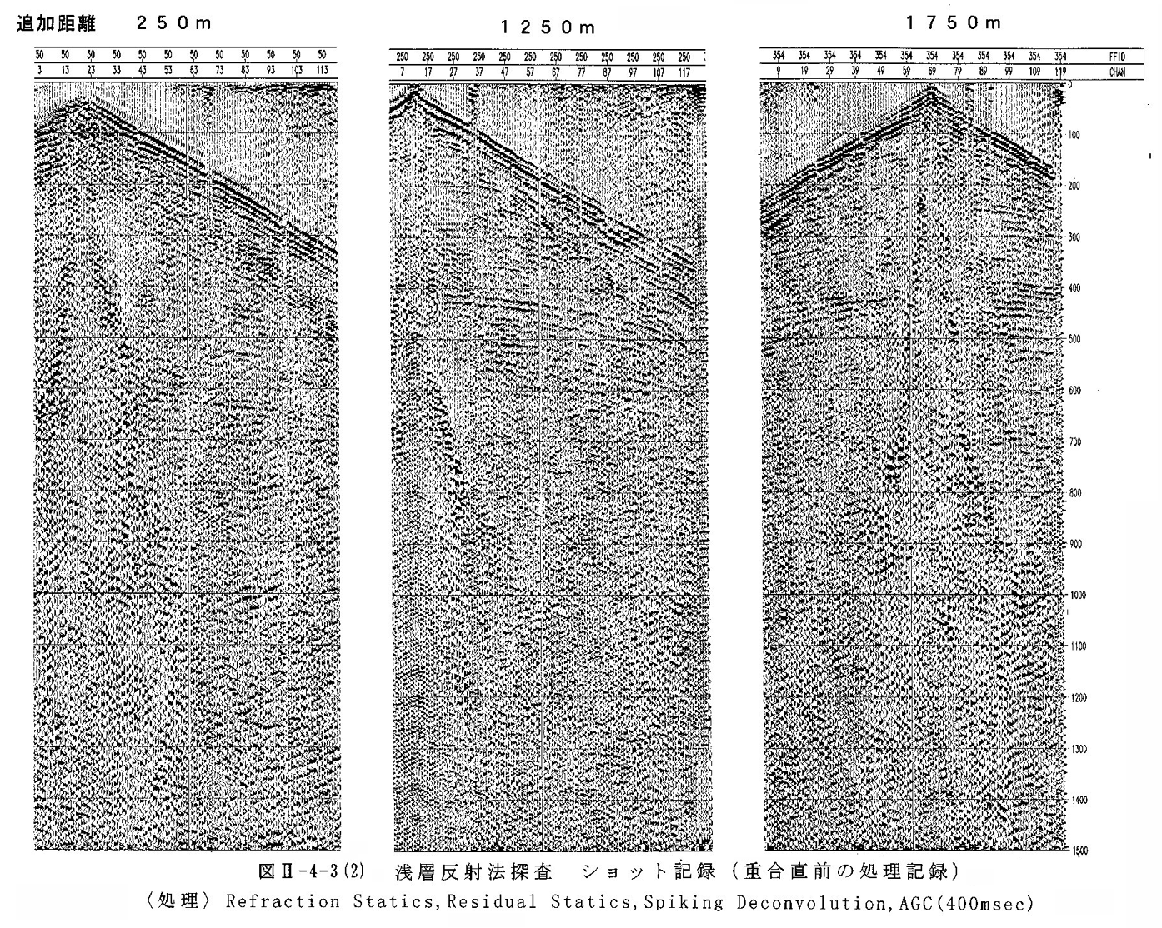 追加距離 250m 1250m 1750m
50 50 50 50 50 50 50 50 50 50 50 50
3 13 23 33 43 53 63 73 83 93 103 113
250 250 250 250 250 250 250 250 250 250 250 250
7 17 27 37 47 57 67 77 87 97 107 117
354 354 354 354 354 354 354 354 354 354 354 354 FFID
9 19 29 39 49 59 69 79 89 99 109 119 CHAN
0
100
200
300
400
500
600
700
800
900
1000
1100
1200
1300
1400
1500
図Ⅱ-4-3(2) 浅層反射法探査 ショット記録(重合直前の処理記録)
(処理) Refraction Statics,Residual Statics,Spiking Deconvolution,AGC(400msec)